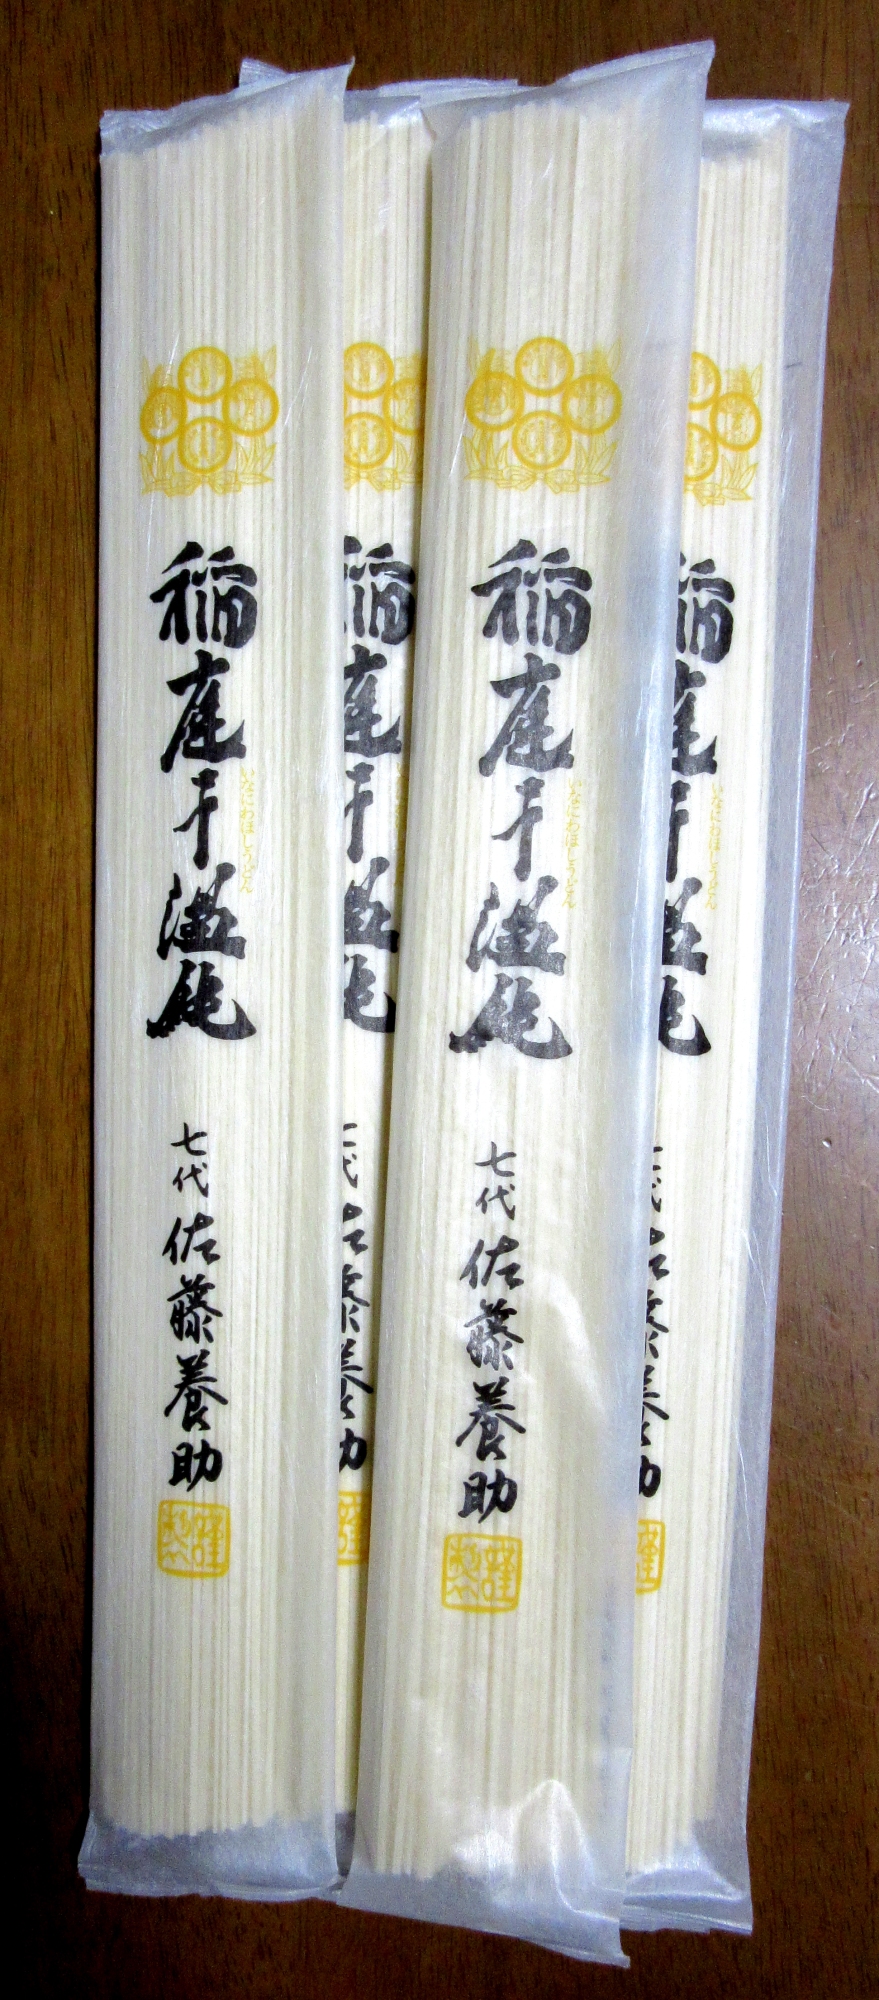 稲庭干温飩
いなにわほしうどん
七代 佐藤養助
稲庭干温飩
七代 佐藤養助
稲庭干温飩
いなにわほしうどん
七代 佐藤養助
稲庭干温飩
いなにわほしうどん
七代 佐藤養助